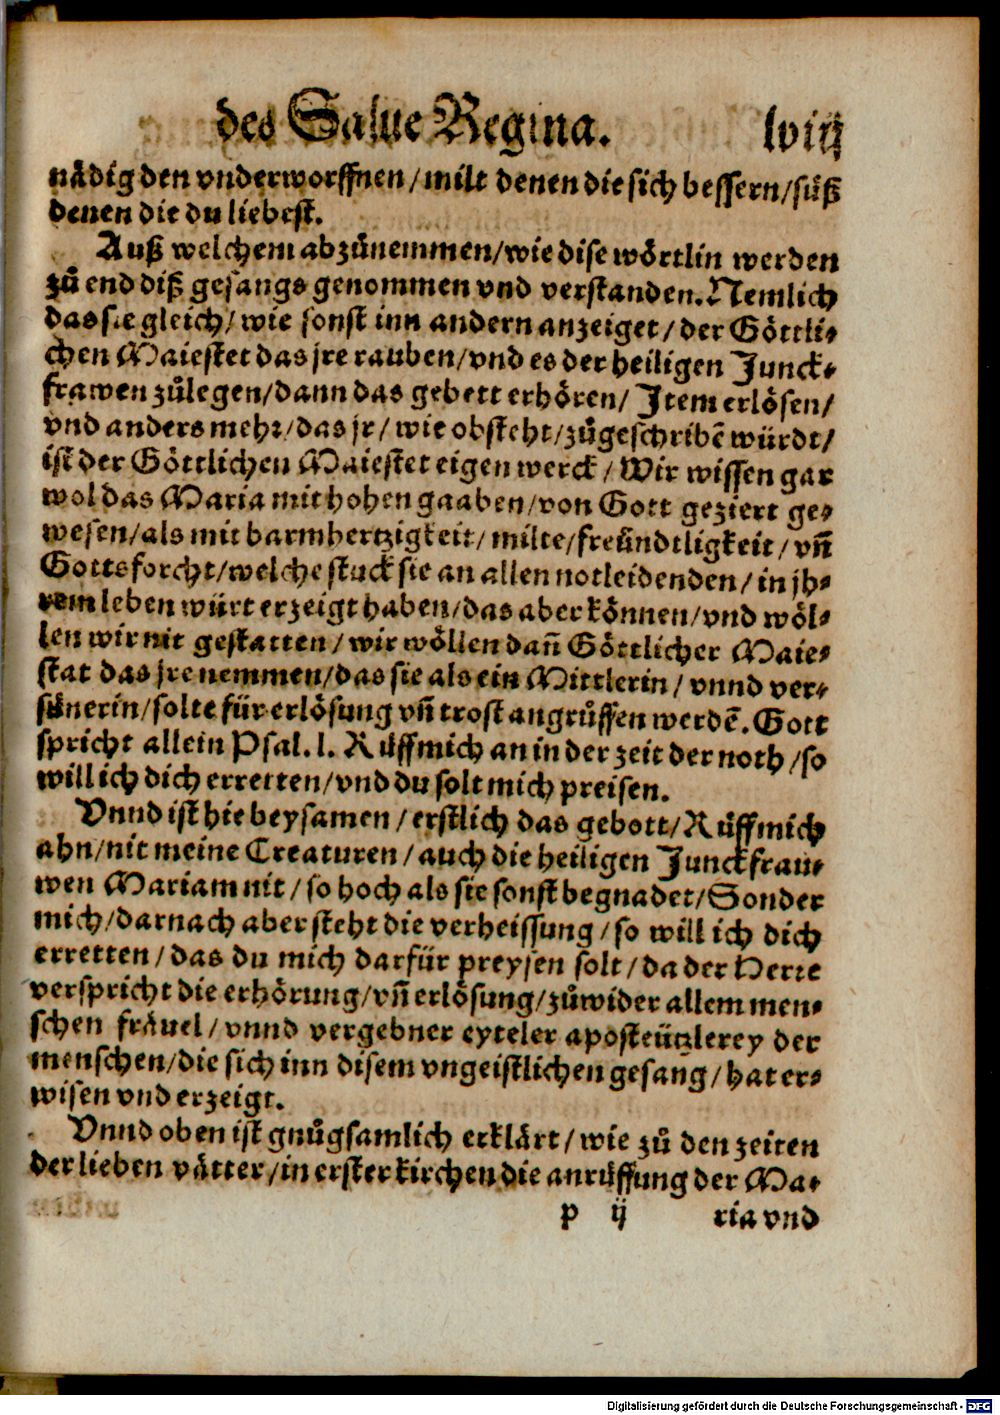 des Salue Regina. lviij
nådig den vnderworffnen/milt denen die sich bessern/sůß
denen die du liebest.
Auß welchem abzůnemmen/wie dise wörtlin werden
zů end diß gesangs genommen vnd verstanden. Nemlich
das sie gleich/wie sonst inn andern anzeiget/der Göttli-
chen Maiestet das jre rauben/vnd es der heiligen Junck-
frawen zůlegen/dann das gebett erhören/Item erlösen/
vnd anders mehr/das jr/wie obsteht/zůgeschribē würdt/
ist der Göttlichen Maiestet eigen werck/Wir wissen gar
wol das Maria mit hohen gaaben/von Gott geziert ge-
wesen/als mit barmhertzigkeit/milte/freündtligkeit/vñ
Gottsforcht/welche stuck sie an allen notleidenden/in jh-
rem leben würt erzeigt haben/das aber können/vnd wöl-
len wir nit gestatten/wir wöllen dañ Göttlicher Maie-
stat das jre nemmen/das sie als ein Mittlerin/vnnd ver-
sünerin/solte für erlösung vñ trost angrůffen werdē. Gott
spricht allein Psal. l. Růff mich an in der zeit der noth/so
will ich dich erretten/vnd du solt mich preisen.
Vnnd ist hie beysamen/erstlich das gebott/Růff mich
ahn/nit meine Creaturen/auch die heiligen Junckfrau-
wen Mariam nit/so hoch als sie sonst begnadet/Sonder
mich/darnach aber steht die verheissung/so will ich dich
erretten/das du mich darfür preysen solt/da der Herre
verspricht die erhörung/vñ erlösung/zůwider allem men-
schen fråuel/vnnd vergebner eyteler aposteützlerey der
menschen/die sich inn disem vngeistlichen gesang/hat er-
wisen vnd erzeigt.
Vnnd oben ist gnůgsamlich erklärt/wie zů den zeiten
der lieben våtter/in erster kirchen die anrůffung der Ma-
p ij ria vnd
Digitalisierung gefördert durch die Deutsche Forschungsgemeinschaft - DFG